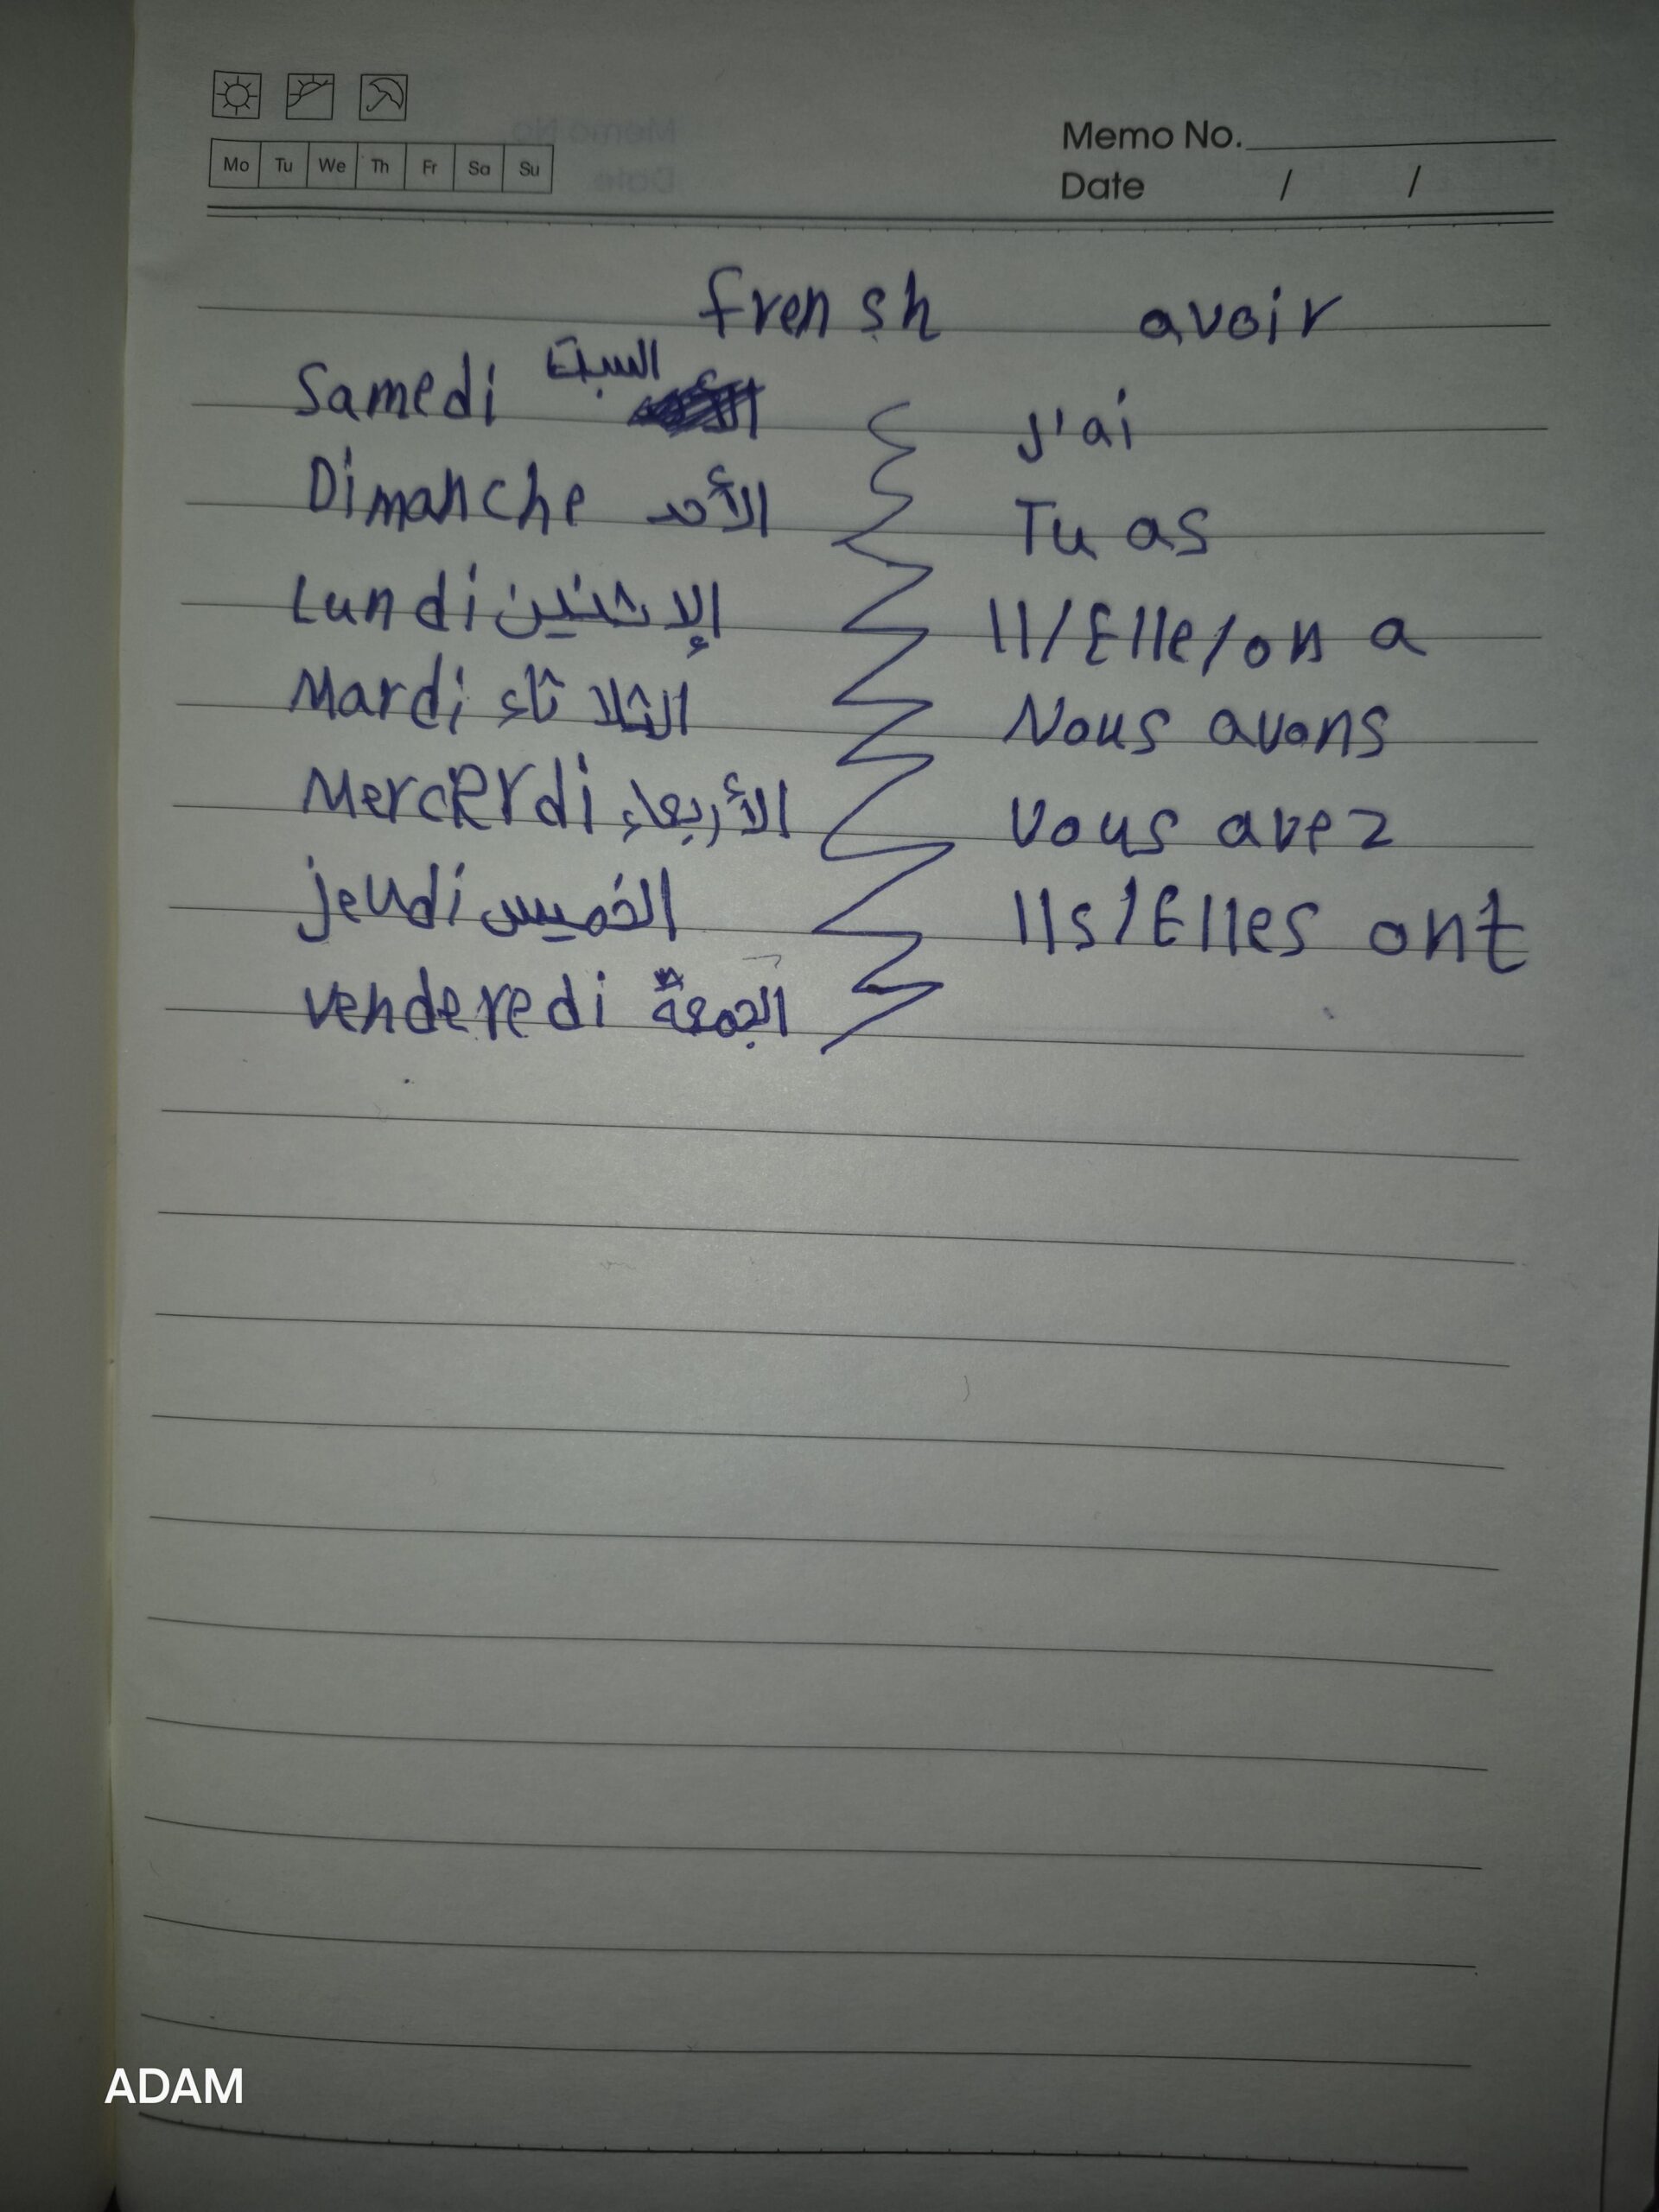 Mo Tu We Th Fr Sa Su
Memo No.
Date / /
frensh
avoir
Samedi السبت
Dimanche الأحد
Lundi الإثنين
Mardi الثلاثاء
Mercerdi الأربعاء
jeudi الخميس
venderedi الجمعة
J'ai
Tu as
Il/Elle/on a
Nous avons
Vous avez
Ils/Elles ont
ADAM